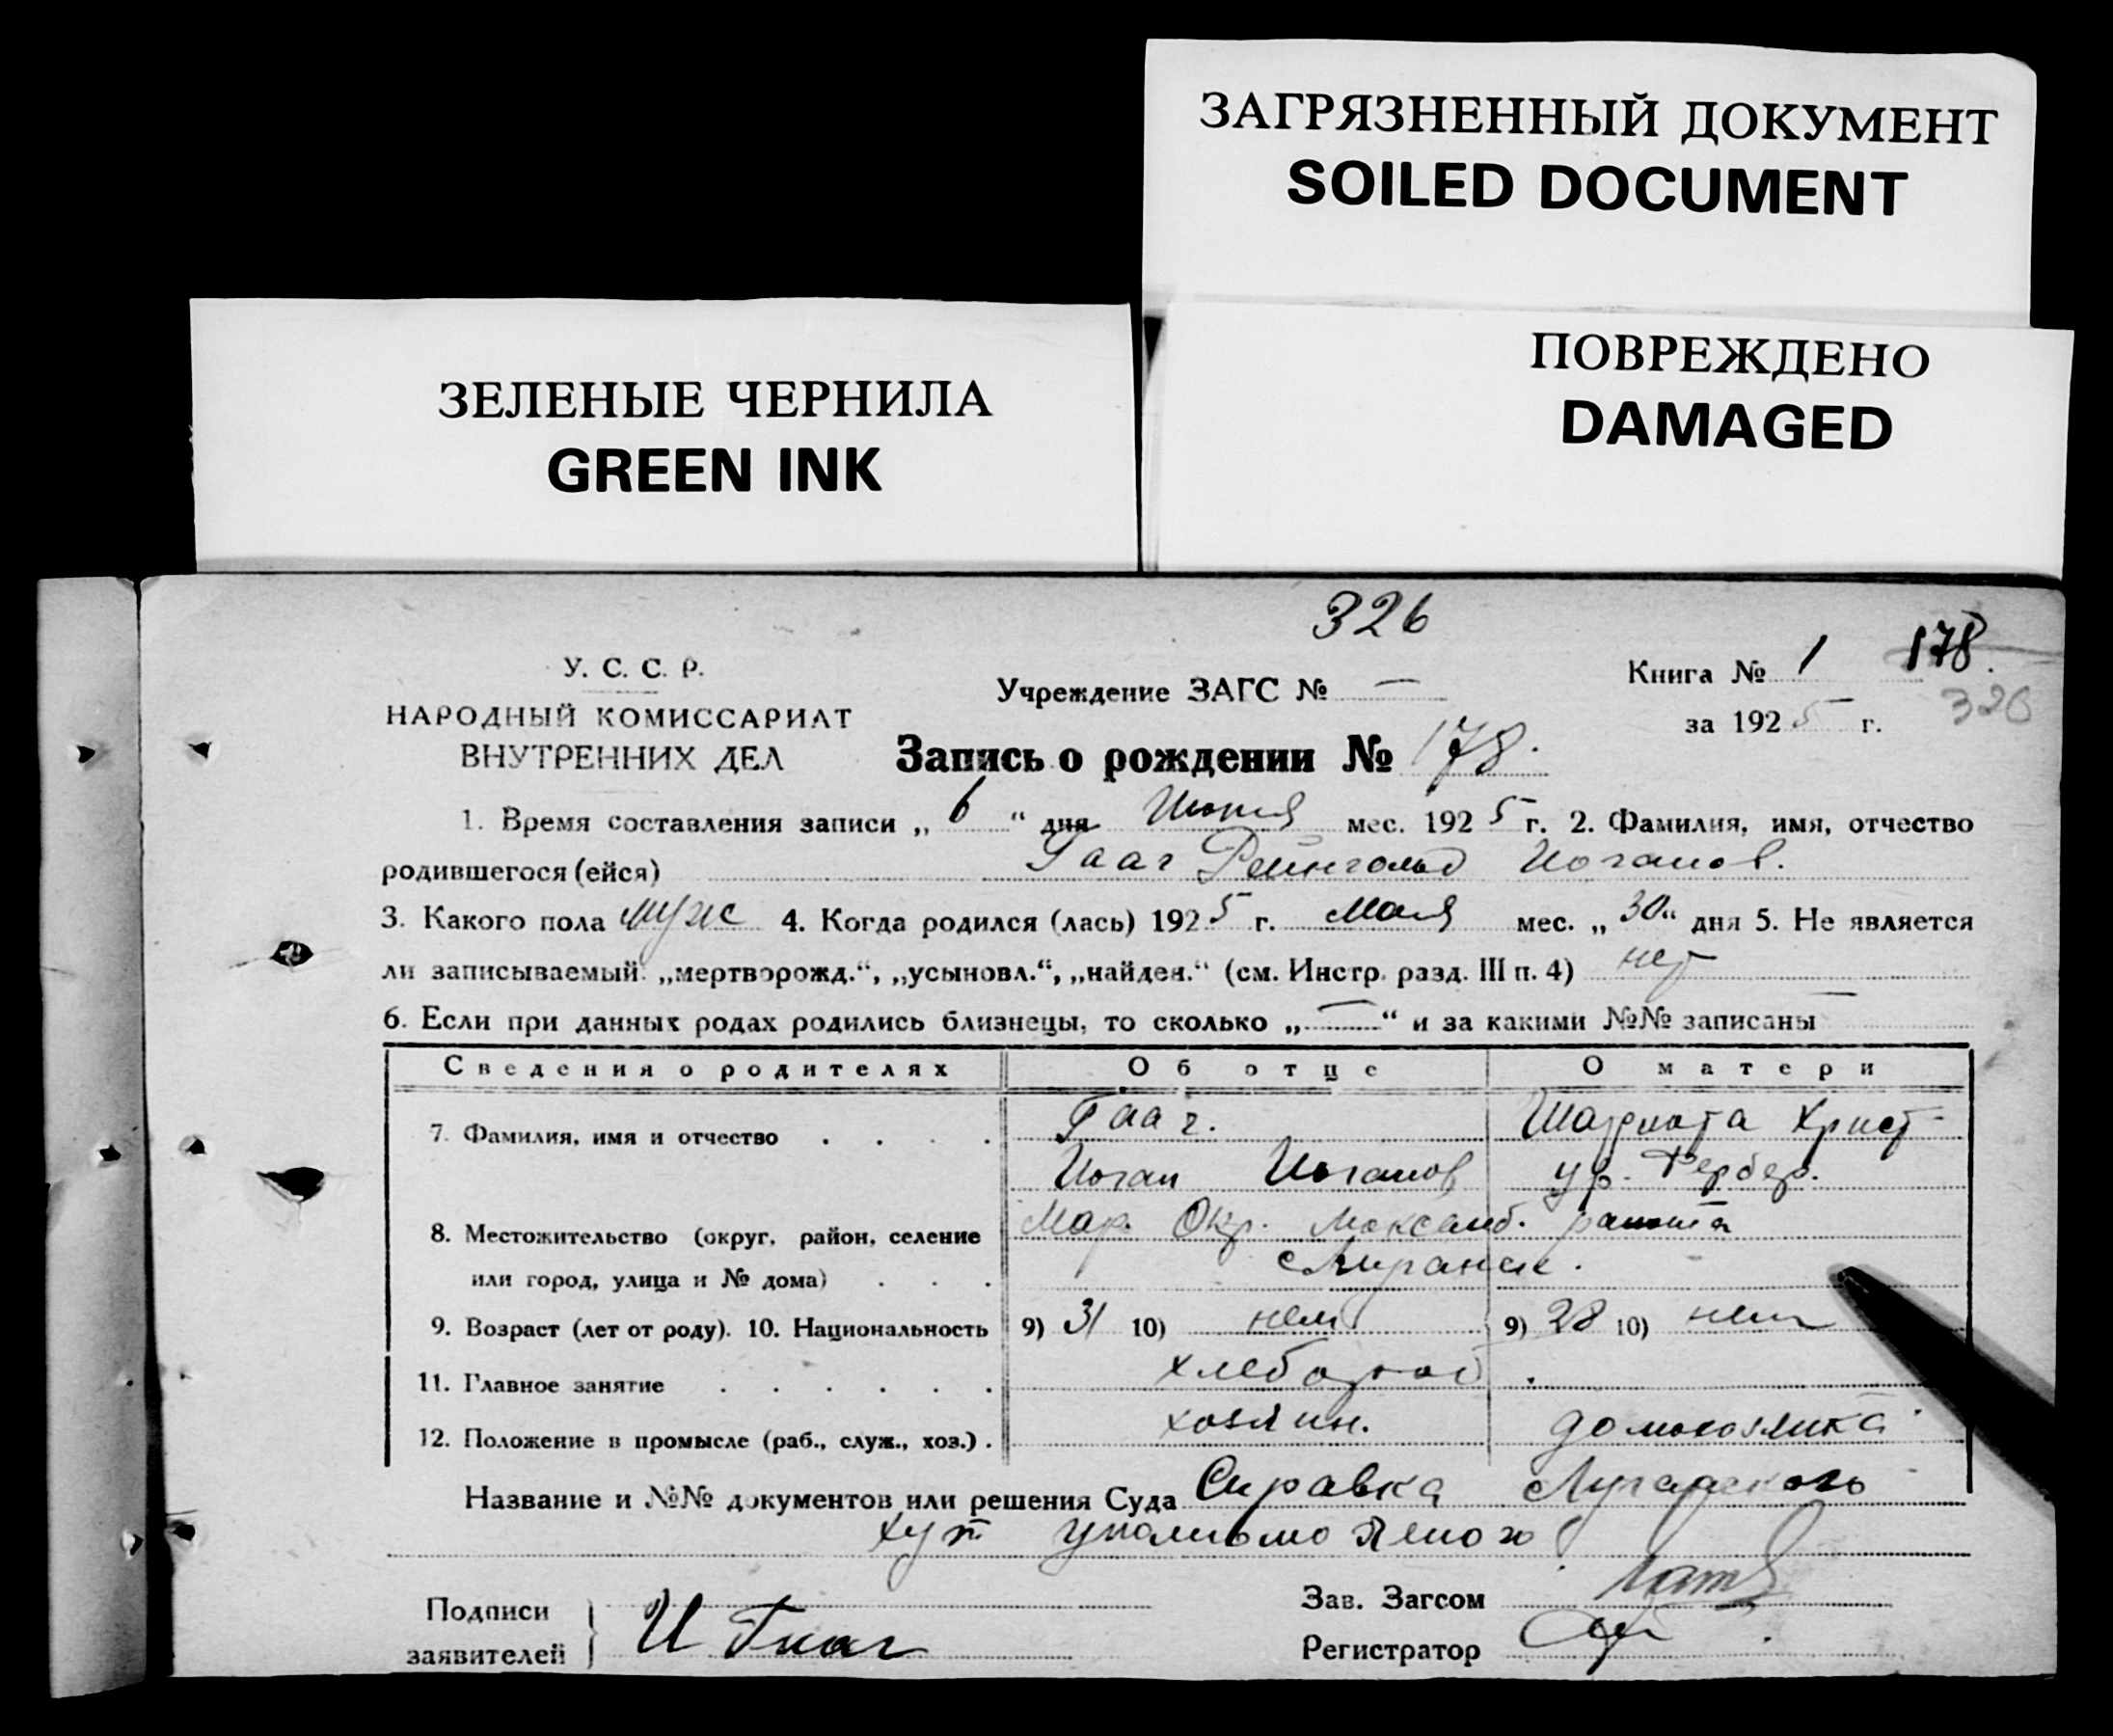 ЗАГРЯЗНЕННЫЙ ДОКУМЕНТ
SOILED DOCUMENT
ПОВРЕЖДЕНО
DAMAGED
ЗЕЛЕНЫЕ ЧЕРНИЛА
GREEN INK
326
У. С. С. Р.
НАРОДНЫЙ КОМИССАРИАТ
ВНУТРЕННИХ ДЕЛ
Учреждение ЗАГС № —
Книга № 1 178.
за 1925 г. 326
Запись о рождении № 178.
1. Время составления записи „ 6 “ дня Июня мес. 1925 г. 2. Фамилия, имя, отчество
родившегося (ейся) Гааг Рейнгольд Иоганов.
3. Какого пола муж 4. Когда родился (лась) 1925 г. Мая мес. „ 30 “ дня 5. Не является
ли записываемый: „мертворожд.“, „усыновл.“, „найден.“ (см. Инстр. разд. III п. 4) нет
6. Если при данных родах родились близнецы, то сколько „ — “ и за какими №№ записаны —
Сведения о родителях Об отце О матери
7. Фамилия, имя и отчество . . . . Гааг. Шарлота Христ
Иоган Иоганов ур. Фербер.
8. Местожительство (округ, район, селение Мар. Окр. района
или город, улица и № дома) . . .
9. Возраст (лет от роду). 10. Национальность 9) 31 10) нем 9) 28 10) нем
11. Главное занятие . . . . . . хлебороб
12. Положение в промысле (раб., служ., хоз.) . хозяин. домохозяйка
Название и №№ документов или решения Суда Справка
хут
Подписи
заявителей
И Гааг
Зав. Загсом
Регистратор